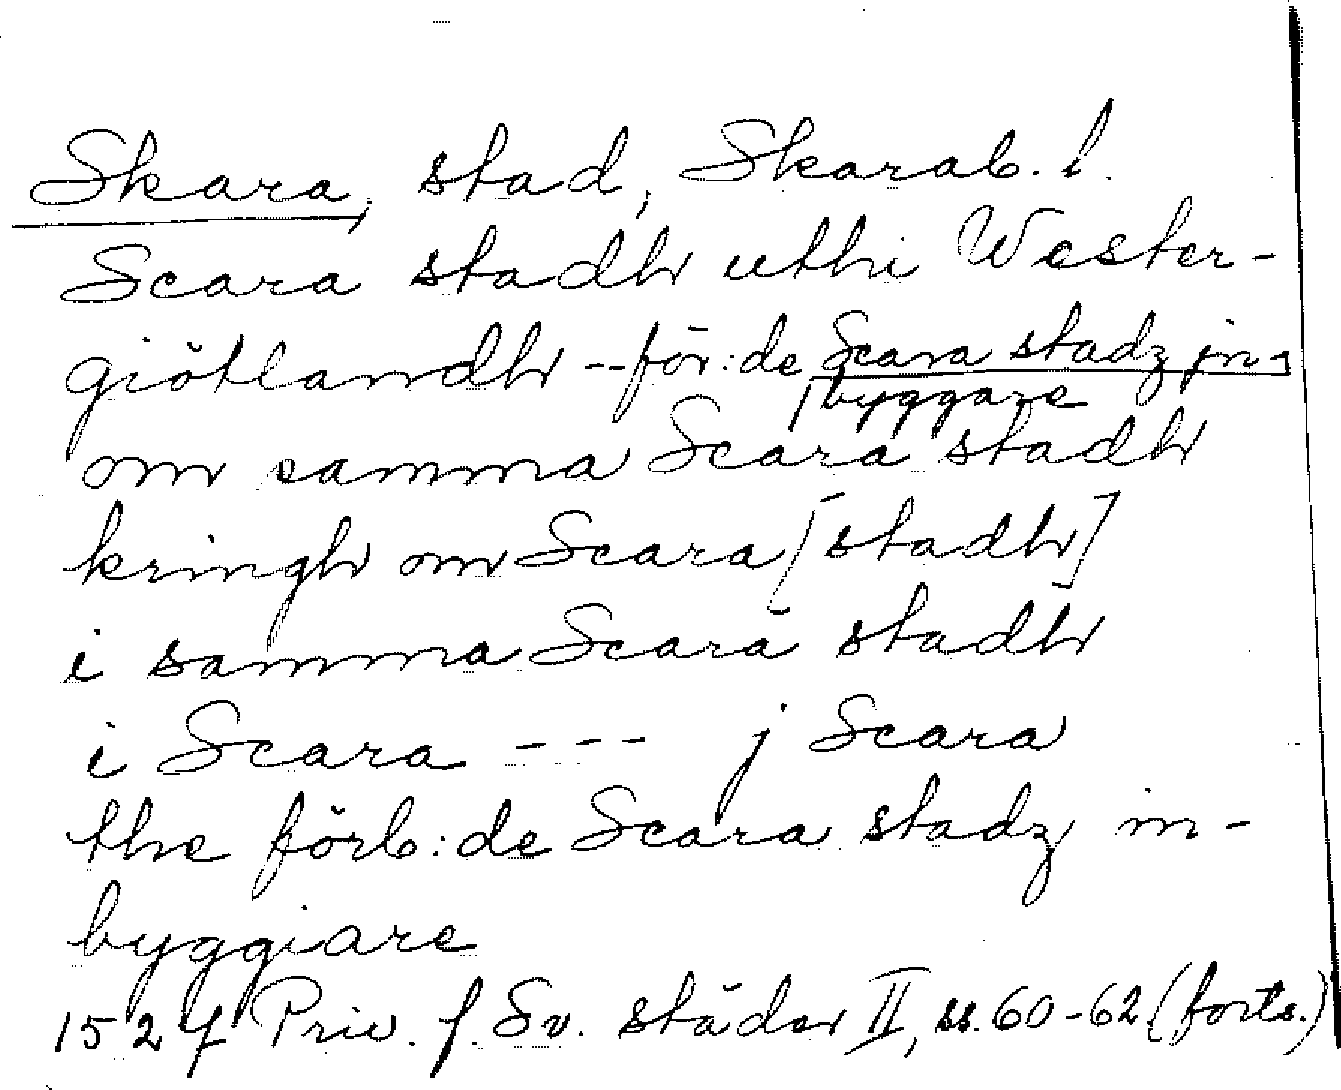 Skara, stad, Skarab. l.
Scara stadh uthi Wester-
giötlandh -- för:de Scara stadz jn-
byggare
om samma Scara stadh
kringh om Scara [stadh]
i samma Scara stadh
i Scara --- j Scara
the förb:de Scara stadz in-
byggiare
1527 Priv. f. Sv. städer II, ss. 60-62 (forts.)